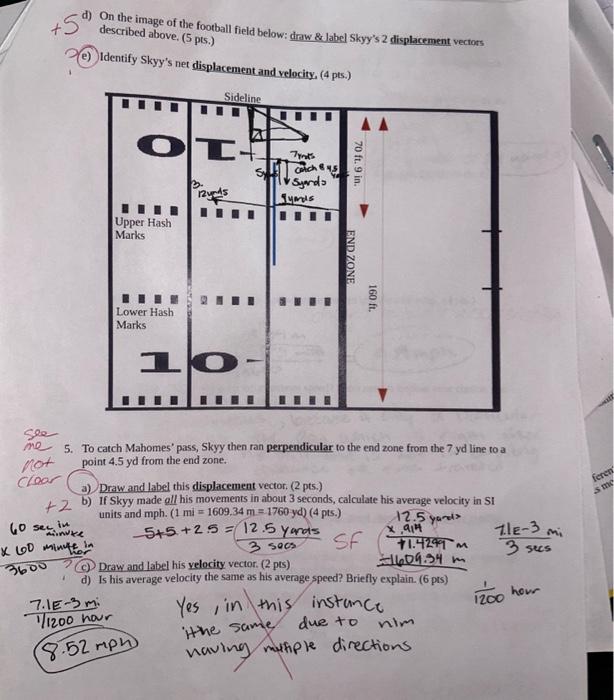 +5
d) On the image of the football field below: draw & label Skyy's 2 displacement vectors
described above. (5 pts.)
e) Identify Skyy's net displacement and velocity. (4 pts.)
Sideline
10
7 yards
catch
5 yards
3.
12 yards
9 yards
70 ft. 9 in.
Upper Hash
Marks
END ZONE
160 ft.
Lower Hash
Marks
10
see
me
not
clear
5. To catch Mahomes' pass, Skyy then ran perpendicular to the end zone from the 7 yd line to a
point 4.5 yd from the end zone.
a) Draw and label this displacement vector. (2 pts.)
+2
b) If Skyy made all his movements in about 3 seconds, calculate his average velocity in SI
units and mph. (1 mi = 1609.34 m = 1760 yd) (4 pts.)
60 sec in
minute
x 60 minute in
hour
3600
5+5+2.5 = 12.5 yards
3 secs
SF
12.5 yards
x .914
11.4299 m
÷1609.34 m
7.1E-3 mi
3 secs
c) Draw and label his velocity vector. (2 pts)
d) Is his average velocity the same as his average speed? Briefly explain. (6 pts)
1
1200 hour
7.1E-3 mi
1/1200 hour
8.52 mph
Yes, in this instance
the same due to him
having multiple directions